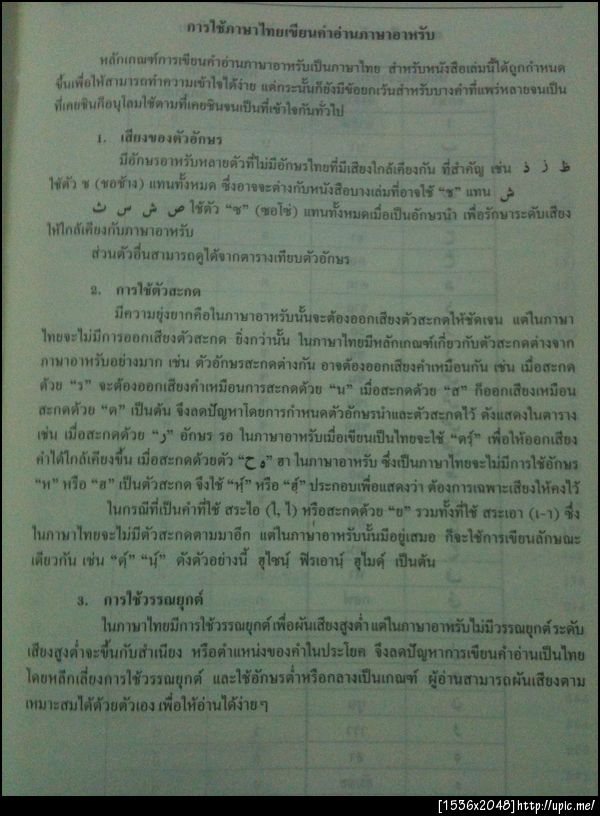 การใช้ภาษาไทยเขียนคำอ่านภาษาอาหรับ
หลักเกณฑ์การเขียนคำอ่านภาษาอาหรับเป็นภาษาไทย สำหรับหนังสือเล่มนี้ได้ถูกกำหนด
ขึ้นเพื่อให้สามารถทำความเข้าใจได้ง่าย แต่กระนั้นก็ยังมีข้อยกเว้นสำหรับบางคำที่แพร่หลายจนเป็น
ที่เคยชินก็อนุโลมใช้ตามที่เคยชินจนเป็นที่เข้าใจกันทั่วไป
1. เสียงของตัวอักษร
มีอักษรอาหรับหลายตัวที่ไม่มีอักษรไทยที่มีเสียงใกล้เคียงกัน ที่สำคัญ เช่น ظ ز ذ
ใช้ตัว ซ (ชอช้าง) แทนทั้งหมด ซึ่งอาจจะต่างกับหนังสือบางเล่มที่อาจใช้ "ช" แทน ش
ص ش س ث ใช้ตัว "ซ" (ซอโซ่) แทนทั้งหมดเมื่อเป็นอักษรนำ เพื่อรักษาระดับเสียง
ให้ใกล้เคียงกับภาษาอาหรับ
ส่วนตัวอื่นสามารถดูได้จากตารางเทียบตัวอักษร
2. การใช้ตัวสะกด
มีความยุ่งยากคือในภาษาอาหรับนั้นจะต้องออกเสียงตัวสะกดให้ชัดเจน แต่ในภาษา
ไทยจะไม่มีการออกเสียงตัวสะกด ยิ่งกว่านั้น ในภาษาไทยมีหลักเกณฑ์เกี่ยวกับตัวสะกดต่างจาก
ภาษาอาหรับอย่างมาก เช่น ตัวอักษรสะกดต่างกัน อาจต้องออกเสียงคำเหมือนกัน เช่น เมื่อสะกด
ด้วย "ร" จะต้องออกเสียงคำเหมือนการสะกดด้วย "น" เมื่อสะกดด้วย "ส" ก็ออกเสียงเหมือน
สะกดด้วย "ด" เป็นต้น จึงลดปัญหาโดยการกำหนดตัวอักษรนำและตัวสะกดไว้ ดังแสดงในตาราง
เช่น เมื่อสะกดด้วย "ر" อักษร รอ ในภาษาอาหรับเมื่อเขียนเป็นไทยจะใช้ เพื่อให้ออกเสียง
คำได้ใกล้เคียงขึ้น เมื่อสะกดด้วยตัว "ح ه" ฮา ในภาษาอาหรับ ซึ่งเป็นภาษาไทยจะไม่มีการใช้อักษร
"ห" หรือ "ฮ" เป็นตัวสะกด จึงใช้ "หฺ์" หรือ "ฮฺ์" ประกอบเพื่อแสดงว่า ต้องการเฉพาะเสียงให้คงไว้
ในกรณีที่เป็นคำที่ใช้ สระไอ (ไ, ใ) หรือสะกดด้วย "ย" รวมทั้งที่ใช้ สระเอา (เ-า) ซึ่ง
ในภาษาไทยจะไม่มีตัวสะกดตามมาอีก แต่ในภาษาอาหรับนั้นมีอยู่เสมอ ก็จะใช้การเขียนลักษณะ
เดียวกัน เช่น "ดฺ์" "นฺ์" ดังตัวอย่างนี้ ฮุไซนฺ์ ฟิรเอานฺ์ ฮุไมดฺ์ เป็นต้น
3. การใช้วรรณยุกต์
ในภาษาไทยมีการใช้วรรณยุกต์ เพื่อผันเสียงสูงต่ำ แต่ในภาษาอาหรับไม่มีวรรณยุกต์ ระดับ
เสียงสูงต่ำจะขึ้นกับสำเนียง หรือตำแหน่งของคำในประโยค จึงลดปัญหาการเขียนคำอ่านเป็นไทย
โดยหลีกเลี่ยงการใช้วรรณยุกต์ และใช้อักษรต่ำหรือกลางเป็นเกณฑ์ ผู้อ่านสามารถผันเสียงตาม
เหมาะสมได้ด้วยตัวเอง เพื่อให้อ่านได้ง่าย ๆ
[1536x2048]http://upic.me/